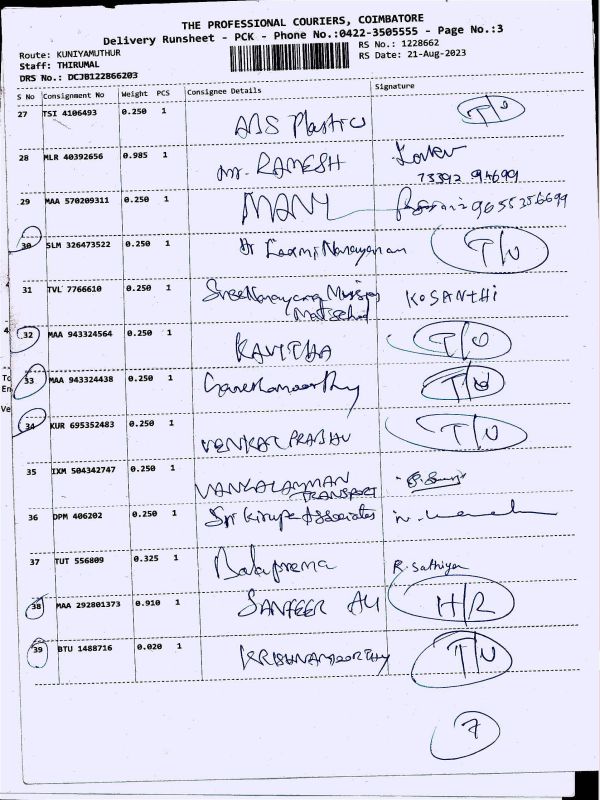 THE PROFESSIONAL COURIERS, COIMBATORE
Delivery Runsheet - PCK - Phone No.:0422-3505555 - Page No.:3
Route: KUNIYAMUTHUR
RS No.: 1228662
Staff: THIRUMAL
RS Date: 21-Aug-2023
DRS No.: DCJB122866203
S No Consignment No Weight PCS Consignee Details Signature
27 TSI 4106493 0.250 1 ABS Plastics T/O
28 MLR 40392656 0.985 1 mr. RAMESH
73392 94699
29 MAA 570209311 0.250 1 MANY 9655356699
30 SLM 326473522 0.250 1 Dr Laxmi Narayanan T/O
31 TVL 7766610 0.250 1 Sree Narayana KOSANTHI
32 MAA 943324564 0.250 1 KAVITHA T/O
33 MAA 943324438 0.250 1 Ganeshamoorthy T/O
34 KUR 695352483 0.250 1 VENKAT PRABHU T/O
35 IXM 504342747 0.250 1
TRANSPORT
36 DPM 406202 0.250 1 Sri Kirupa Associates
37 TUT 556809 0.325 1 Balaprema R. Sathiya
38 MAA 292801373 0.910 1 SANFEER ALI H/R
39 BTU 1488716 0.020 1 KRISHNAMOORTHY T/O
7